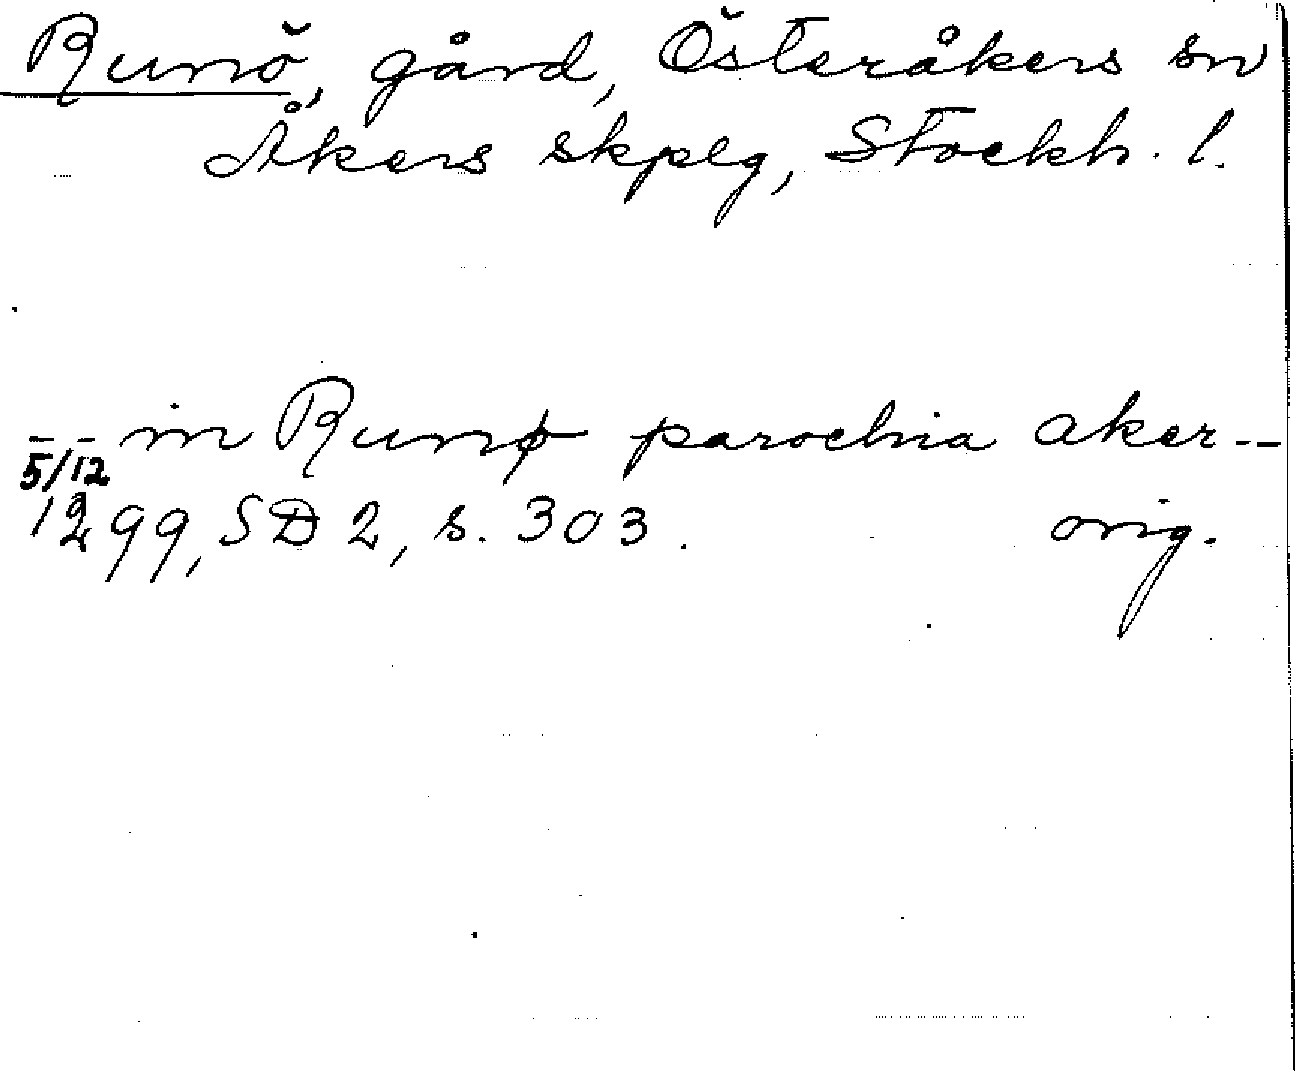 Runö, gård, Österåkers sn
Åkers skplg, Stockh. l.
in Runø parochia aker--
5/12
1299, SD 2, s. 303. orig.